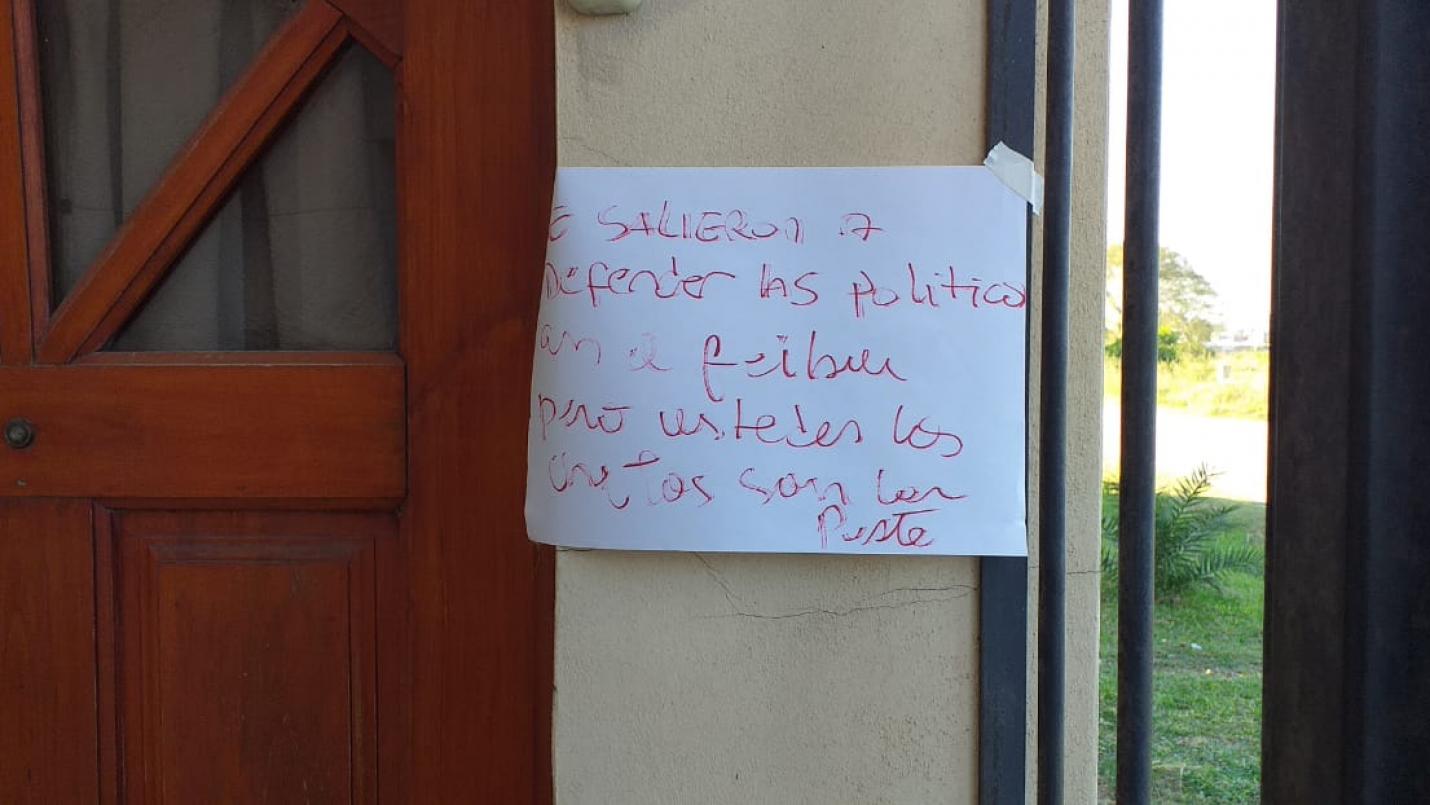 SALIERON A
Defender los politico
an el feibuu
pero ustedes los
son la
Peste